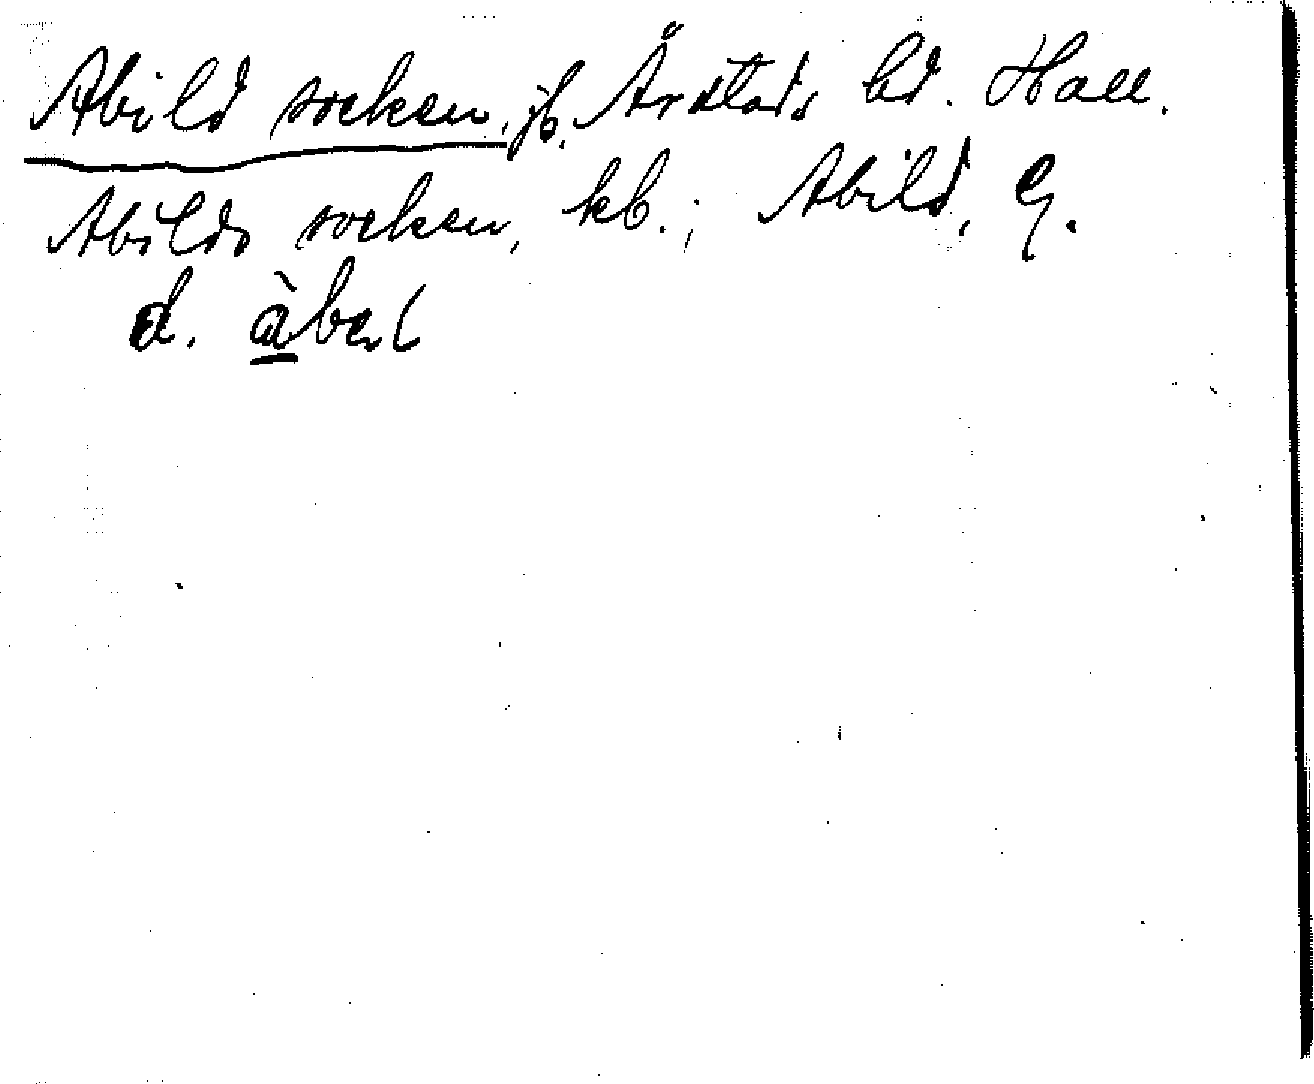 Abild socken, jb. Årstads hd. Hall.
Abilds socken, kb.; Abild, G.
d. àbel